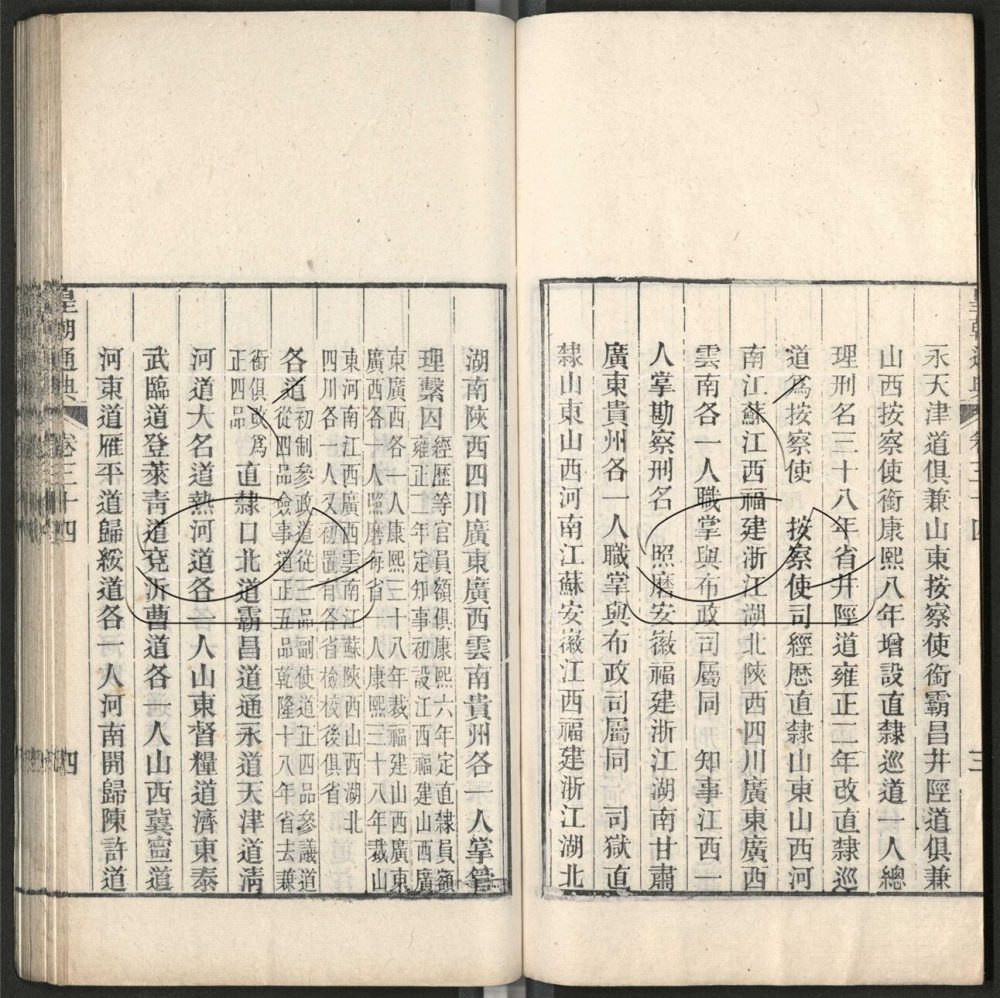 永天津道俱兼山東按察使銜霸昌井陘道俱兼
山西按察使銜康熙八年增設直隸巡道一人總
理刑名三十八年省井陘道雍正二年改直隸巡
道爲按察使 按察使司經歷直隸山東山西河
南江蘇江西福建浙江湖北陜西四川廣東廣西
雲南各一人職掌與布政司屬同 知事江西一
人掌勘察刑名 照磨安徽福建浙江湖南甘肅
廣東貴州各一人職掌與布政司屬同 司獄直
隸山東山西河南江蘇安徽江西福建浙江湖北
湖南陜西四川廣東廣西雲南貴州各一人掌管
理繫囚
經歷等官員額俱康熙六年定直隸員額
雍正二年定知事初設江西福建山西廣
東廣西各一人康熙三十八年裁福建山西廣東
廣西各一人照磨每省一人康熙三十八年裁山
東河南江西廣西雲南江蘇陜西山西湖北
四川各一人又初置有各省檢校後俱省
各道
初制參政道從三品副使道正四品參議道
從四品僉事道正五品乾隆十八年省去兼
銜俱改爲
正四品
直隸口北道霸昌道通永道天津道淸
河道大名道熱河道各一人山東督糧道濟東泰
武臨道登萊靑道兗沂曹道各一人山西冀寧道
河東道雁平道歸綏道各一人河南開歸陳許道
皇朝通典
卷三十四
四
三